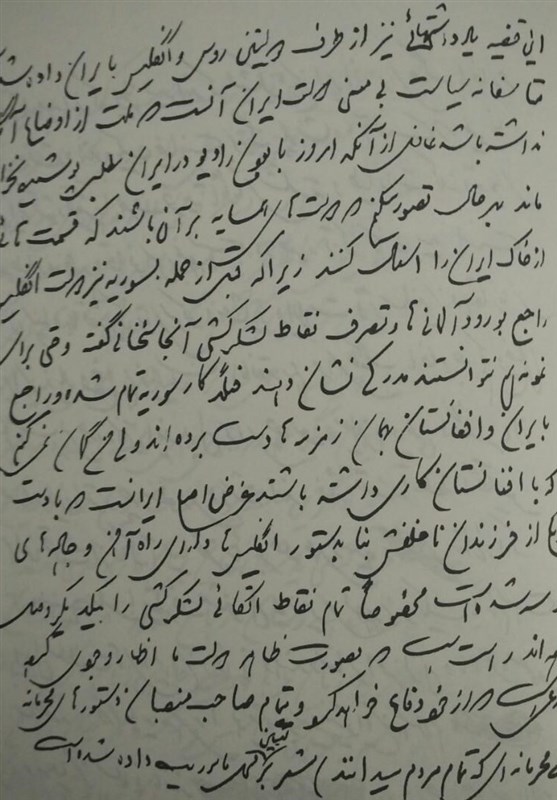 این قضیه یادداشتهائی نیز از طرف دولتین روس و انگلیس بایران داده شده
متاسفانه سیاست بی معنی دولت ایران آنست که ملت از اوضاع
نداشته باشد غافل از آنکه امروز با بودن رادیو در ایران مطلبی پوشیده نخواهد
ماند بهرحال تصور میکنم که دولت های همسایه برآن باشند که قسمت هائی
از خاک ایران را اشغال کنند زیرا که قبل از حمله بسوریه نیز دولت انگلیس
راجع بورود آلمانی ها و تصرف نقاط لشکرکشی آنجا سخنانی گفته وقتی برای
نمونه هم نتوانستند مدرکی نشان دهند فعلا کار سوریه تمام شده و راجع
بایران و افغانستان بهمان زمزمه ها دست برده اند ولی هیچ گمان نمی کنم
که با افغانستان کاری داشته باشند غرض اصلی ایرانست که با دست
از فرزندان ناخلفش بنا بدستور انگلیس ها دارای راه آهن و جاده های
شده است مخصوصاً تمام نقاط اتکائی لشکرکشی را بیکدیگر وصل
اند در است که بصورت ظاهر دولت ما اظهار وجودی کرده
که از خود دفاع خواهد کرد و تمام صاحب منصبان دستورهای محرمانه
محرمانه ای که تمام مردم میدانند) مأموریت داده شده است